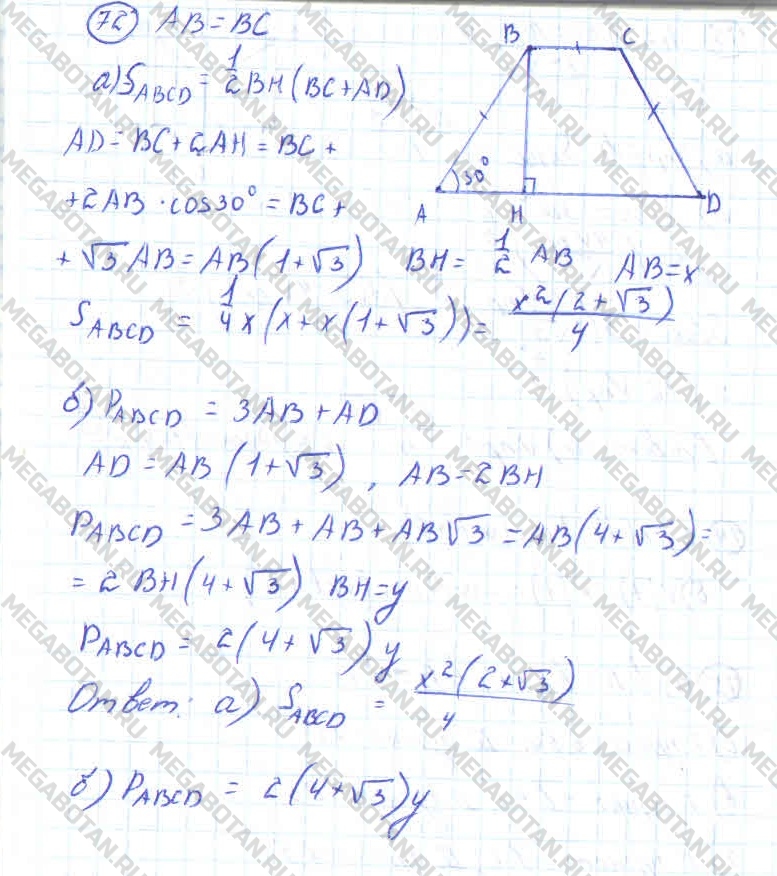 72 AB = BC
а) S_ABCD = 1/2 BH (BC + AD)
AD = BC + 2AH = BC +
+ 2AB · cos30° = BC +
+ √3 AB = AB(1 + √3) BH = 1/2 AB AB = x
S_ABCD = 1/4 x (x + x(1 + √3)) = x²(2 + √3)/4
B C
30°
A H D
б) P_ABCD = 3AB + AD
AD = AB (1 + √3), AB = 2BH
P_ABCD = 3AB + AB + AB√3 = AB(4 + √3) =
= 2BH(4 + √3) BH = y
P_ABCD = 2(4 + √3) y
Ответ: а) S_ABCD = x²(2 + √3)/4
б) P_ABCD = 2(4 + √3)y
MEGABOTAN.RU